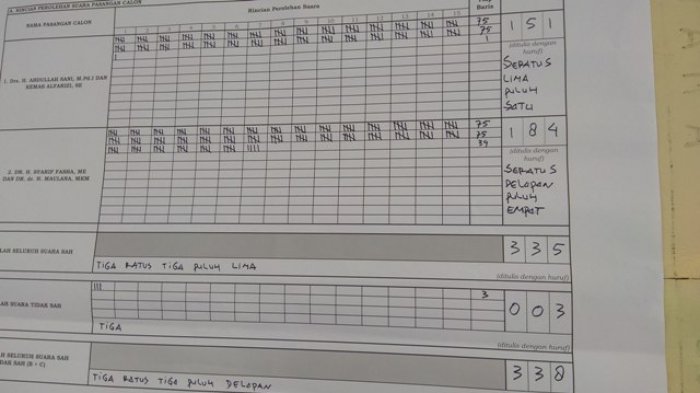 A. RINCIAN PEROLEHAN SUARA PASANGAN CALON
NAMA PASANGAN CALON
Rincian Perolehan Suara
Baris
2 3 4 5 6 7 8 9 10 11 12 13 14 15
1. Drs. H. ABDULLAH SANI, M.Pd.I DAN
KEMAS ALFARIZI, SE
75
75
1
151
(ditulis dengan
huruf)
SERATUS
LIMA
PULUH
SATU
2. DR. H. SYARIF FASHA, ME
DAN DR. dr. H. MAULANA, MKM
75
75
34
184
(ditulis dengan
huruf)
SERATUS
DELAPAN
PULUH
EMPAT
LAH SELURUH SUARA SAH
335
TIGA RATUS TIGA PULUH LIMA
(ditulis dengan huruf)
LAH SUARA TIDAK SAH
3
003
TIGA
(ditulis dengan huruf)
H SELURUH SUARA SAH
DAK SAH (B + C)
338
TIGA RATUS TIGA PULUH DELAPAN